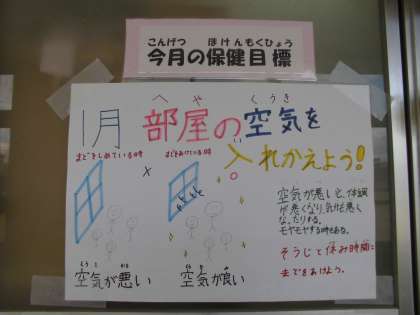 こんげつ ほけんもくひょう
今月の保健目標
へや くうき
1月 部屋の空気を
入れかえよう!
まどをしめている時 まどをあけている時
×
空気が悪いと、体調
が悪くなり、気分も悪く
なったりする。
モヤモヤする時もある。
そうじと休み時間に
まどをあけよう。
空気が悪い 空気が良い